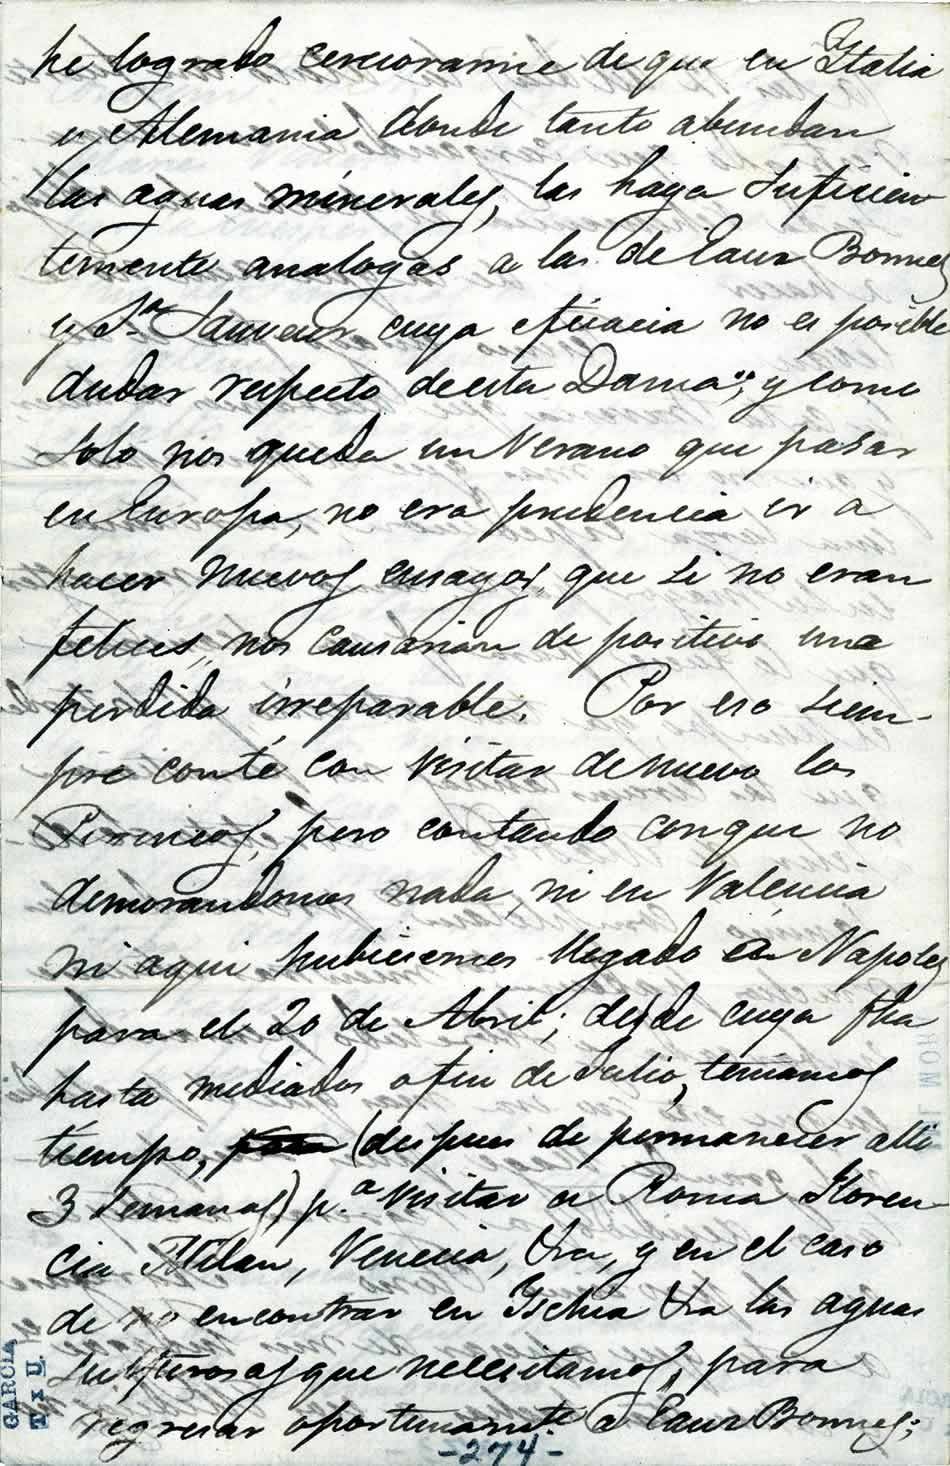 he logrado cerciorarme de que en Italia
y Alemania donde tanto abundan
las aguas minerales, las haya suficien
temente analogas a las de Eaux Bonnes
y St. Sauveur cuya eficacia no es posible
dudar respecto de esta Dama"; y como
solo nos queda un Verano que pasar
en Europa, no era prudencia ir a
hacer nuevos ensayos, que si no eran
felices, nos causarian de positivo una
perdida irreparable. Por eso siem-
pre conté con visitar de nuevo los
Pirineos, pero contando con que no
demorandonos nada, ni en Valencia
ni aqui hubiesemos llegado a Napoles
para el 20 de Abril; desde cuya fha
hasta mediados o fin de Julio, teniamos
tiempo, (despues de permanecer alli
3 Semanas) p.a visitar a Roma Floren-
cia Milan, Venecia, &a, y en el caso
de no encontrar en Ischia &a las aguas
sulfurosas que necesitamos, para
regresar oportunamte. a Eaux Bonnes;
-274-
GARCIA
T x U